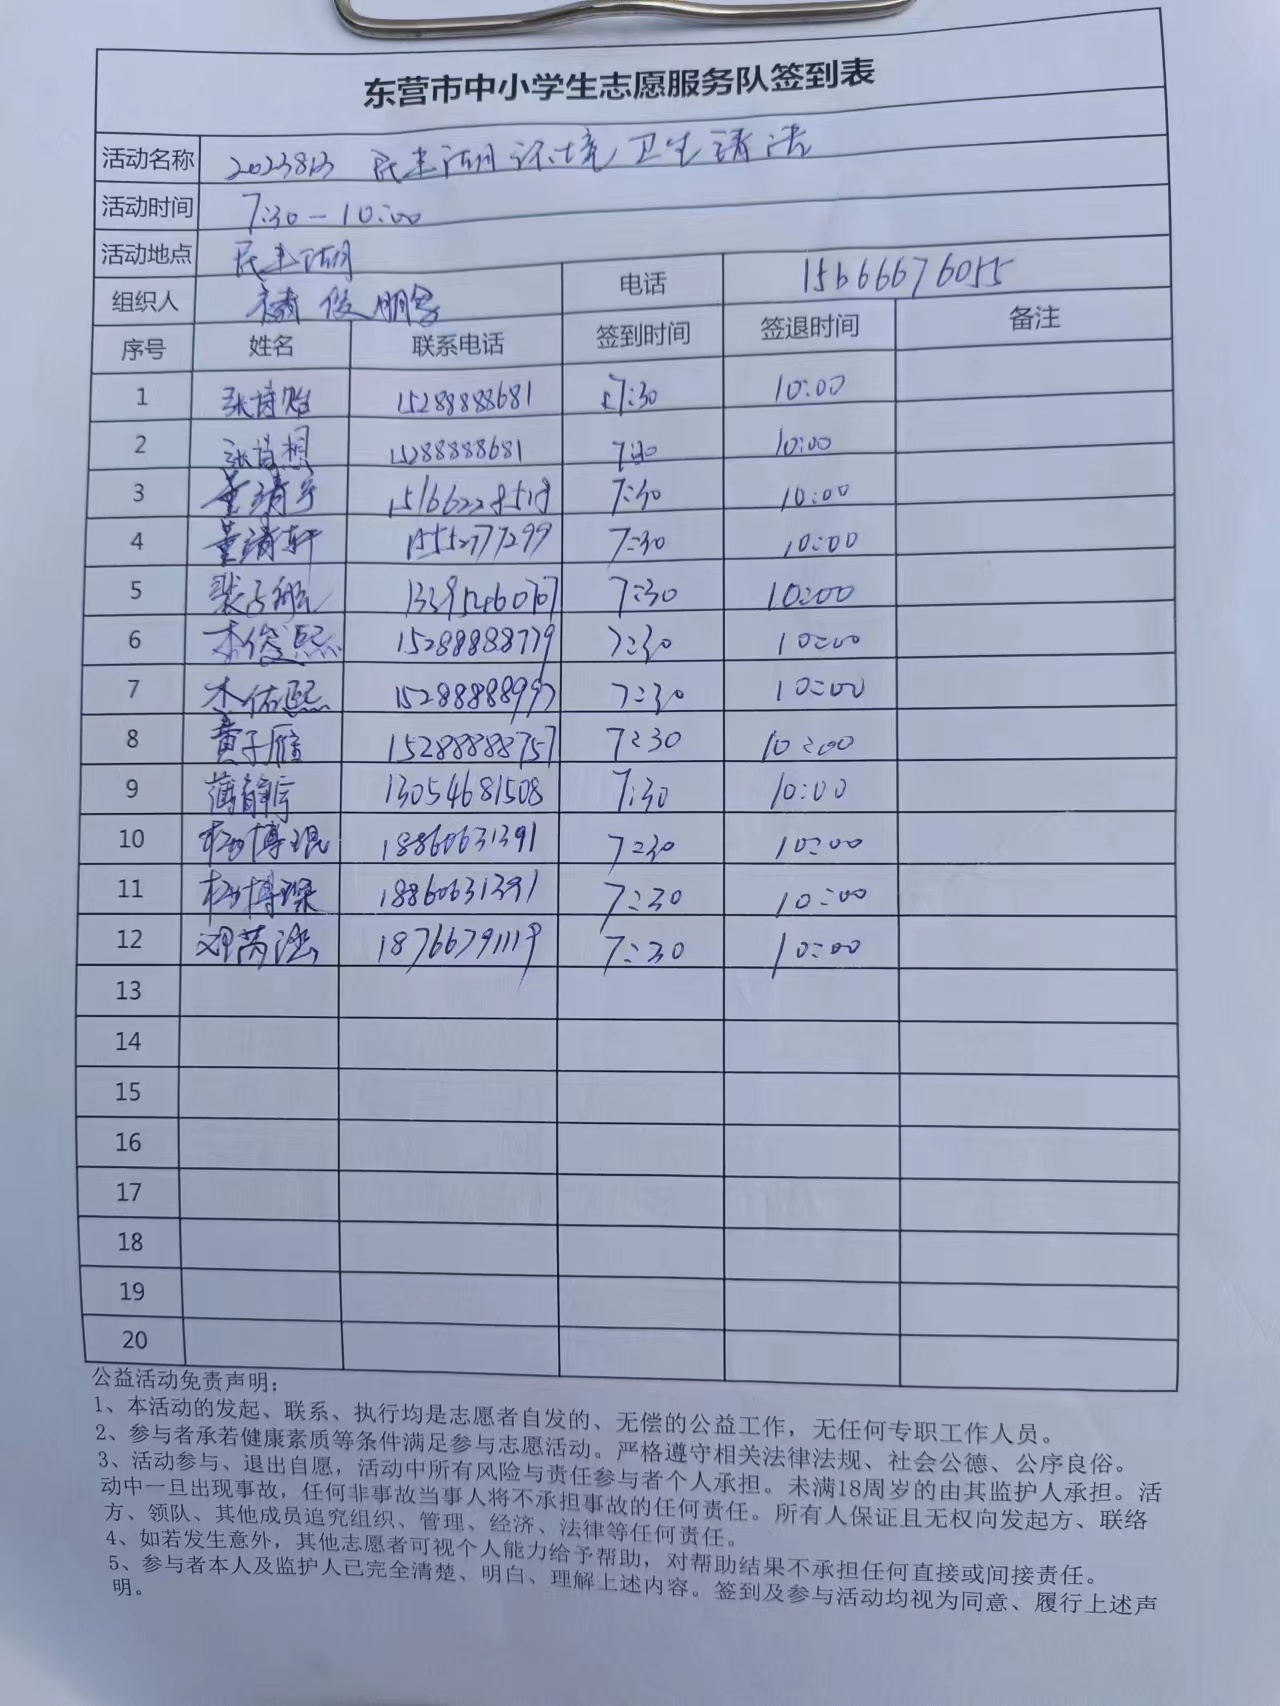 东营市中小学生志愿服务队签到表
活动名称 2023813 民丰湖环境卫生清洁
活动时间 7:30-10:00
活动地点 民丰湖
组织人 电话 15666676055
序号 姓名 联系电话 签到时间 签退时间 备注
1 张诗贻 15288888681 7:30 10:00
2 张诗想 15288888681 7:30 10:00
3 董靖宇 15166228518 7:30 10:00
4 董靖轩 15552777299 7:30 10:00
5 裴子 13395460707 7:30 10:00
6 李俊熙 15288888779 7:30 10:00
7 李佑熙 15288888997 7:30 10:00
8 黄子雁 15288888757 7:30 10:00
9 蒲静宇 13054681508 7:30 10:00
10 杨博琨 18860631391 7:30 10:00
11 杨博琛 18860631391 7:30 10:00
12 邓芮 18766791119 7:30 10:00
13
14
15
16
17
18
19
20
公益活动免责声明：
1、本活动的发起、联系、执行均是志愿者自发的、无偿的公益工作，无任何专职工作人员。
2、参与者承若健康素质等条件满足参与志愿活动。严格遵守相关法律法规、社会公德、公序良俗。
3、活动参与、退出自愿，活动中所有风险与责任参与者个人承担。未满18周岁的由其监护人承担。活
动中一旦出现事故，任何非事故当事人将不承担事故的任何责任。所有人保证且无权向发起方、联络
方、领队、其他成员追究组织、管理、经济、法律等任何责任。
4、如若发生意外，其他志愿者可视个人能力给予帮助，对帮助结果不承担任何直接或间接责任。
5、参与者本人及监护人已完全清楚、明白、理解上述内容。签到及参与活动均视为同意、履行上述声
明。